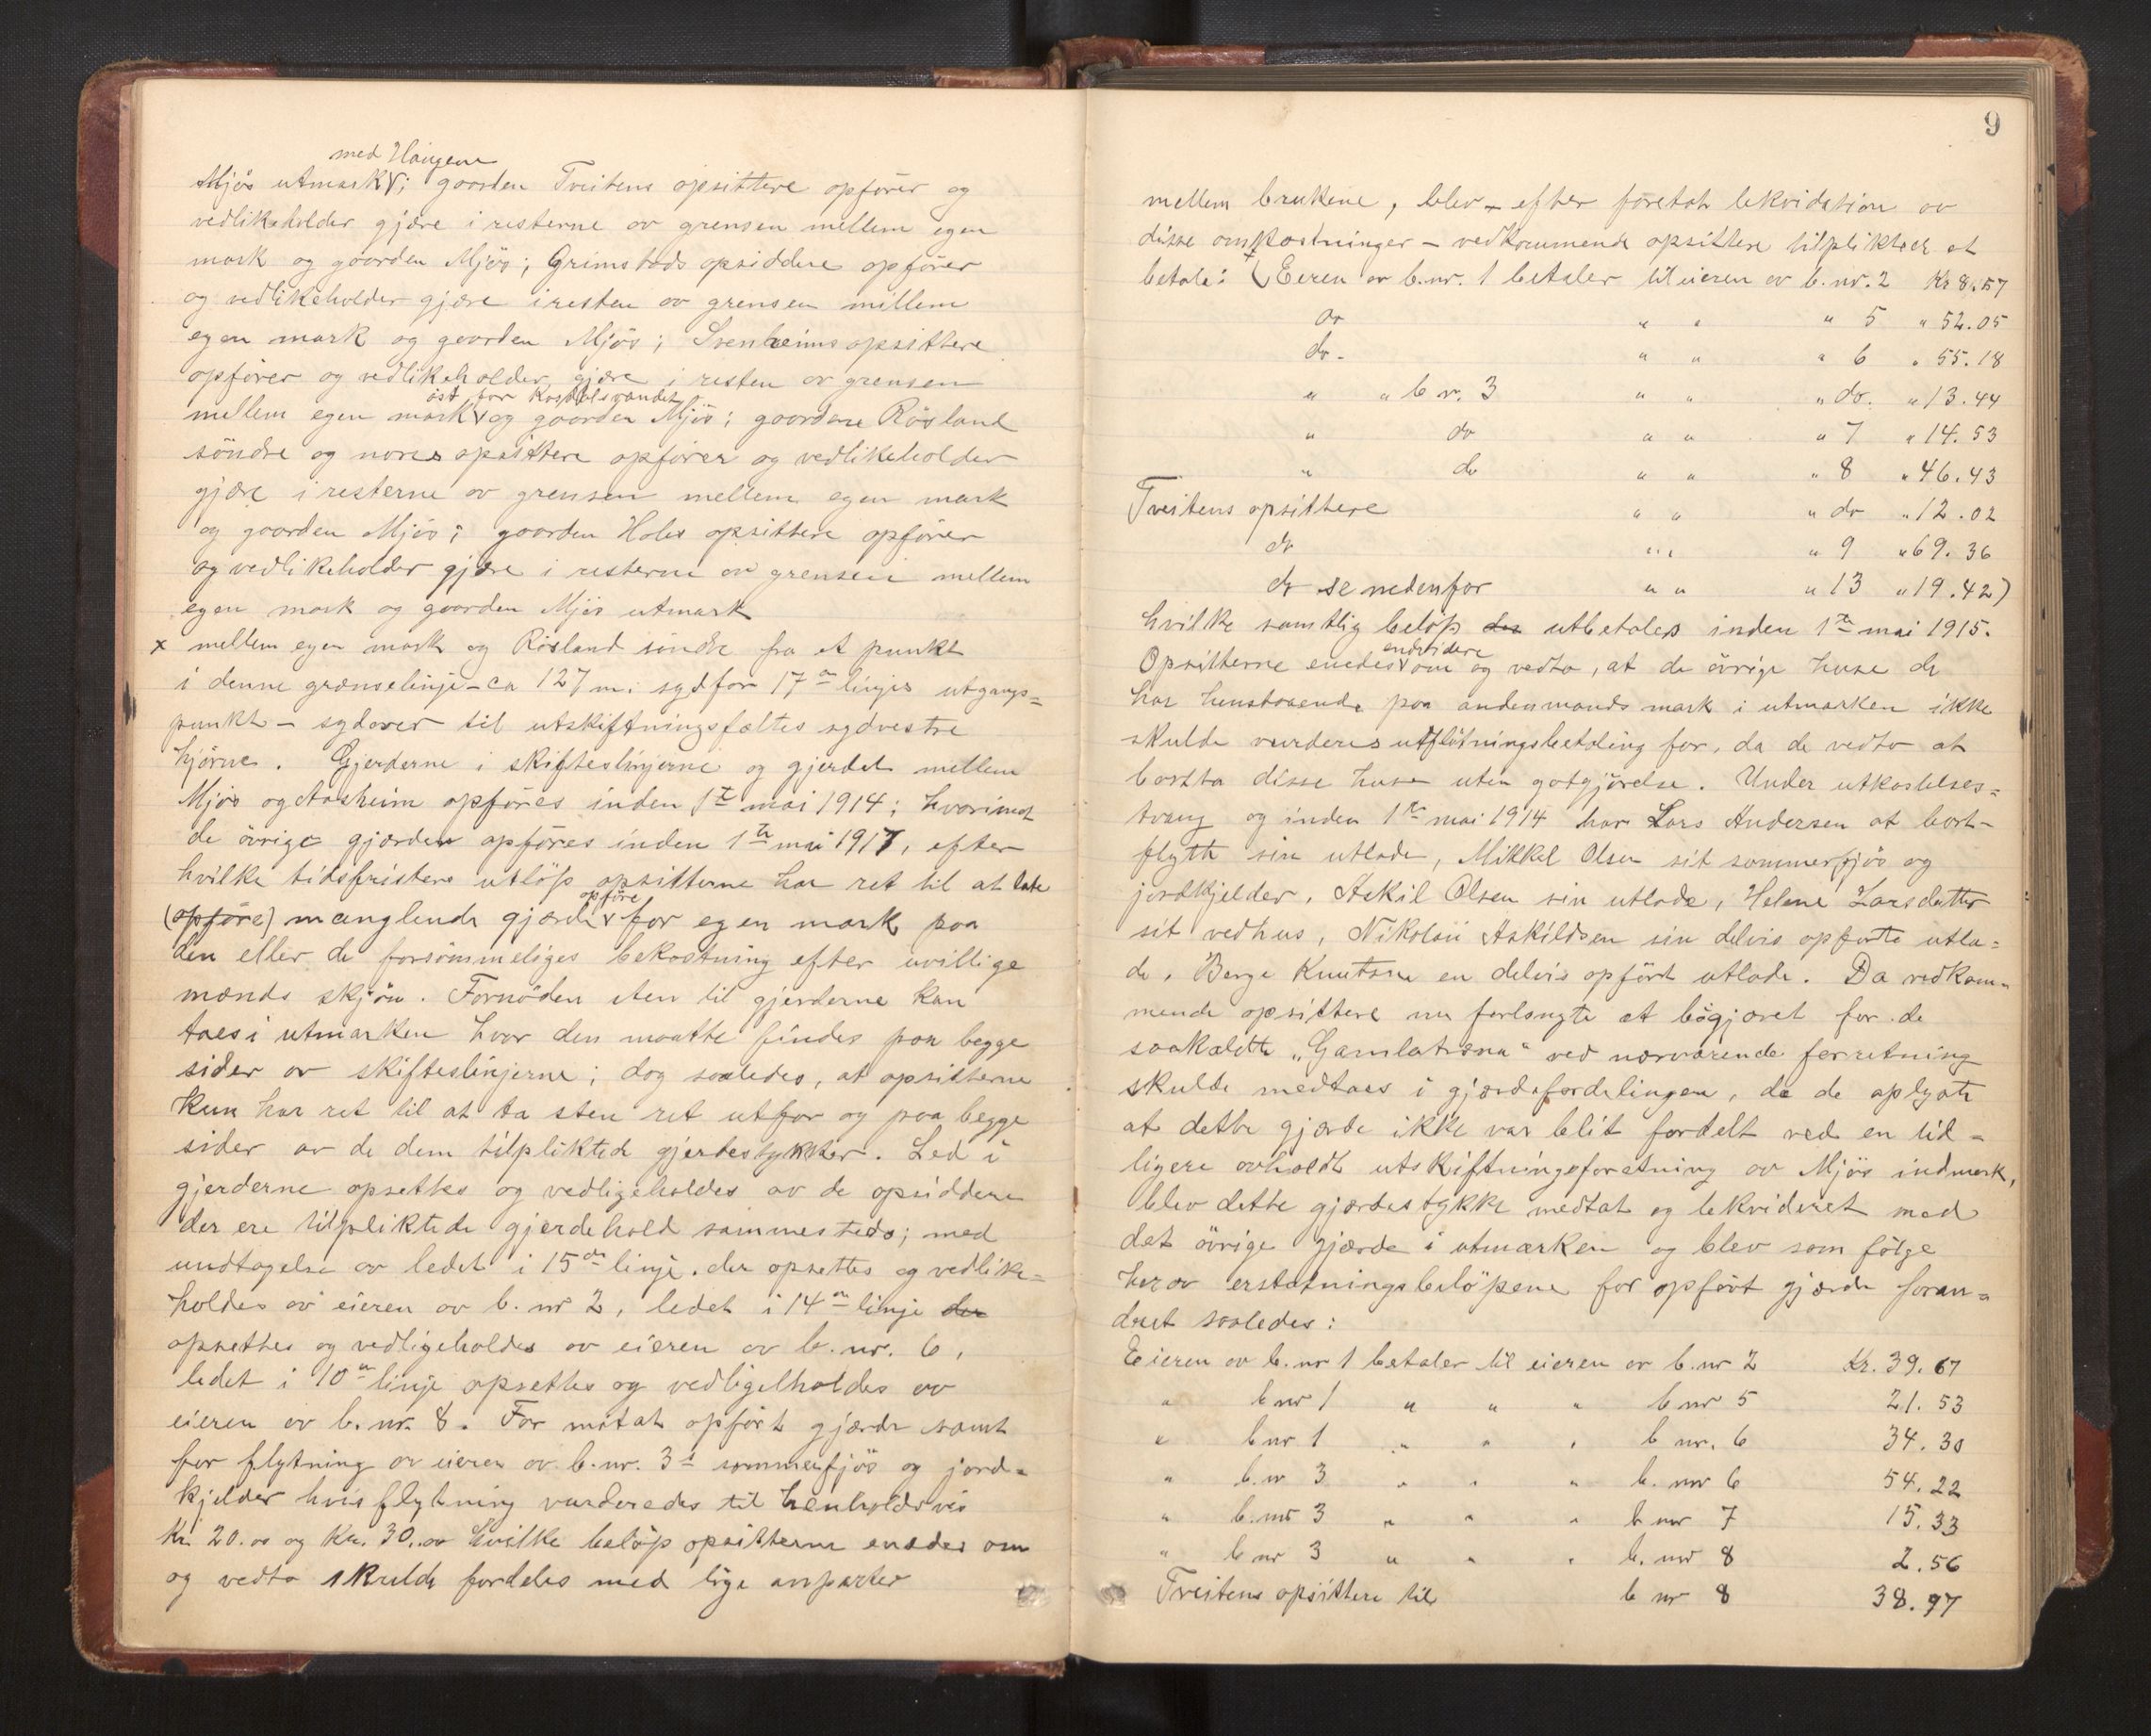 med Haugene
Mjös utmark; gaarden Tveitens opsittere opfører og
vedlikeholder gjære i resterne av grensen mellem egen
mark og gaarden Mjös; Grimstads opsiddere opfører
og vedlikeholder gjære i resten av grensen mellem
egen mark og gaarden Mjös; Svenheims opsittere
opfører og vedlikeholder gjære i resten av grensen
öst for
mellem egen mark og gaarden Mjös; gaardene Rösland
söndre og nores opsittere opfører og vedlikeholder
gjære i resterne av grensen mellem egen mark
og gaarden Mjös; gaarden Holes opsittere opfører
og vedlikeholder gjære i resterne av grensen mellem
egen mark og gaarden Mjös utmark
x mellem egen mark og Rösland söndre fra et punkt
i denne grænselinje – ca 127 m. sydfor 17de linjes utgangs=
punkt – sydover til utskiftningsfeltets sydvestre
hjörne. Gjerderne i skifteslinjerne og gjerdet mellem
Mjös og Aasheim opföres inden 1ste mai 1914; hvorimot
de övrige gjærder opföres inden 1ste mai 1917, efter
hvilke tidsfristers utlöp opsitterne har ret til at late
opföre
(opföre) manglende gjærde for egen mark paa
den eller de forsömmeliges bekostning efter uvillige
mænds skjön. Fornöden sten til gjerderne kan
taes i utmarken hvor den maatte findes paa begge
sider av skifteslinjerne; dog saaledes, at opsitterne
kun har ret til at ta sten ret utfor og paa begge
sider av de dem tilpliktede gjerdestykker. Led i
gjerderne opsettes og vedligeholdes av de opsiddere
der ere tilpliktede gjerdehold sammesteds; med
undtagelse av ledet i 15de linje. der opsettes og vedlike=
holdes av eieren av b. nr 2, ledet i 14de linje der
opsettes og vedligeholdes av eieren av b. nr. 6,
ledet i 10de linje opsettes og vedligeholdes av
eieren av b. nr. 8. For mottat opfört gjærde samt
for flytning av eieren av b. nr. 3s sommerfjös og jord=
kjelder hvis flytning vurderedes til henholdsvis
Kr. 20.00 og Kr. 30.00 hvilke belöp opsitterne enedes om
og vedto skulde fordeles med lige anparter
9
mellem brukene, blev – efter foretat lekvidation av
disse omkostninger – vedkommende opsittere tilpliktet at
betale: (Eeren av b. nr. 1 betaler til eieren av b. nr. 2 Kr 8.57
do " " " 5 " 52.05
do - " " " 6 " 55.18
" " b nr. 3 " " " do. " 13.44
" do " " " 7 " 14.53
" do " " " 8 " 46.43
Tveitens opsittere " " " do " 12.02
do " " " 9 " 69.36
do se nedenfor " " " 13 " 19.42)
hvilke samtlig belöp der utbetales inden 1ste mai 1915.
endvidere
Opsitterne enedes om og vedto, at de övrige huse de
har henstaaende paa andenmands mark i utmarken ikke
skulde vurderes utflötningsbetaling for, da de vedto at
bortta disse huse uten gotgjörelse. Under utkastelses=
tvang og inden 1ste mai 1914 har Lars Andersen at bort-
flytte sin utlade, Mikkel Olsen sit sommerfjös og
jordkjelder, Askil Olsen sin utlade, Helene Larsdatter
sit vedhus, Nikolai Askildsen sin delvis opförte utla=
de, Berge Knutsen en delvis opfört utlade. Da vedkom=
mende opsittere nu forlangte at bögjæret for de
saakaldte „Gamlatræna“ ved nærværende forretning
skulde medtaes i gjærdefordelingen, da de oplyste
at dette gjærde ikke var blit fordelt ved en tid=
ligere avholdt utskiftningsforetning av Mjös indmark,
blev dette gjærdestykke medtat og lekvideret med
det övrige gjærde i utmarken og blev som fölge
herav erstatningsbelöpene for opfört gjærde foran=
dret saaledes:
Eieren av b. nr 1 betaler til eieren av b. nr 2 Kr. 39.67
" b nr 1 " " " b nr 5 21.53
" b nr 1 " " " b nr. 6 34.30
" b. nr 3 " " " b. nr 6 54.22
" b. nr 3 " " " b nr 7 15.33
" b nr 3 " " " b. nr 8 2.56
Tveitens opsittere til b nr 8 38.97